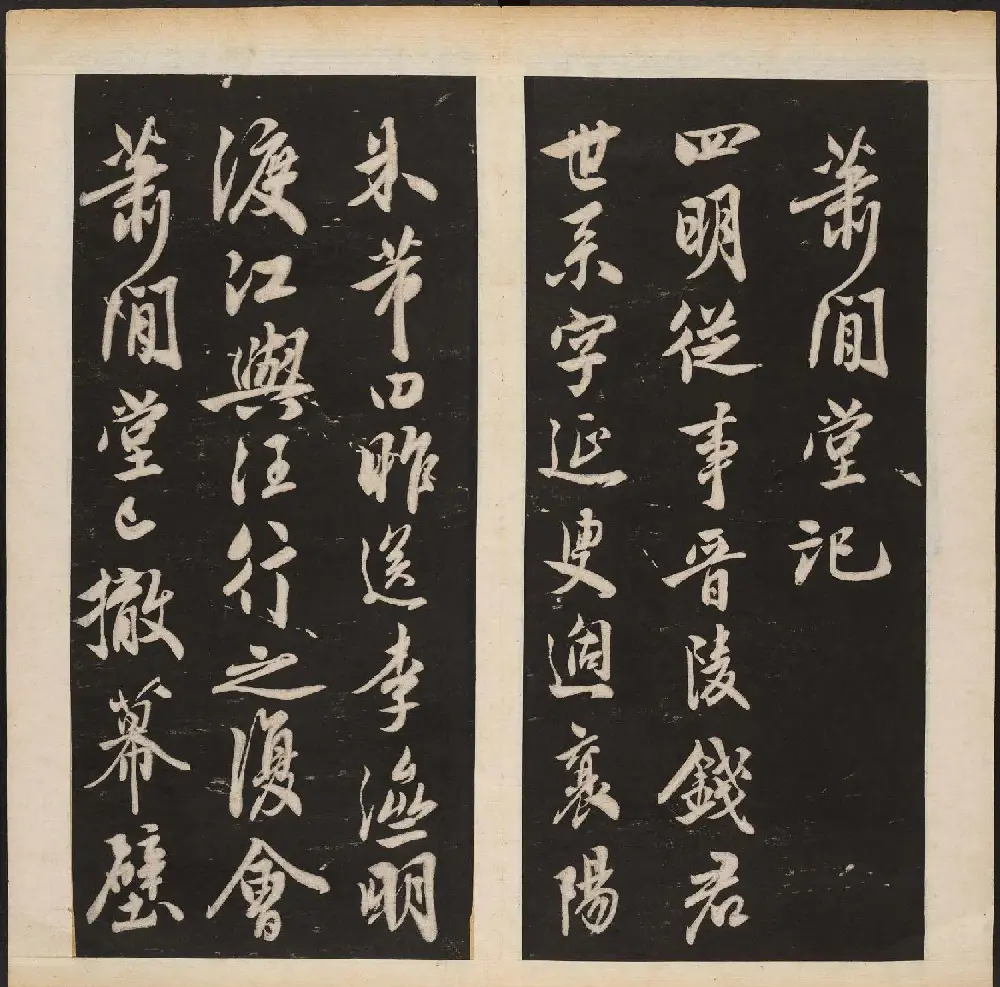 蕭閒堂記
四明從事晉陵錢君
世系字延叟過襄陽
米芾曰昨送李
明
渡江與汪行之復會
蕭閒堂已撤幕壁